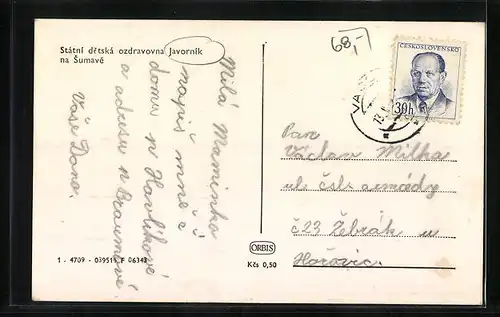 Státní dětská ozdravovna Javorník
na Šumavě
68,-
ČESKOSLOVENSKO
30h
Milá Maminko
napiš mně č
domu p Havlíkové
a adresu p
Vaše Dana.
Pan
Václav Milka
ul. čsl. armády
č 23 Žebrák u
Hořovic.
ORBIS
Kčs 0,50
1 - 4709 - 039515 F 06343